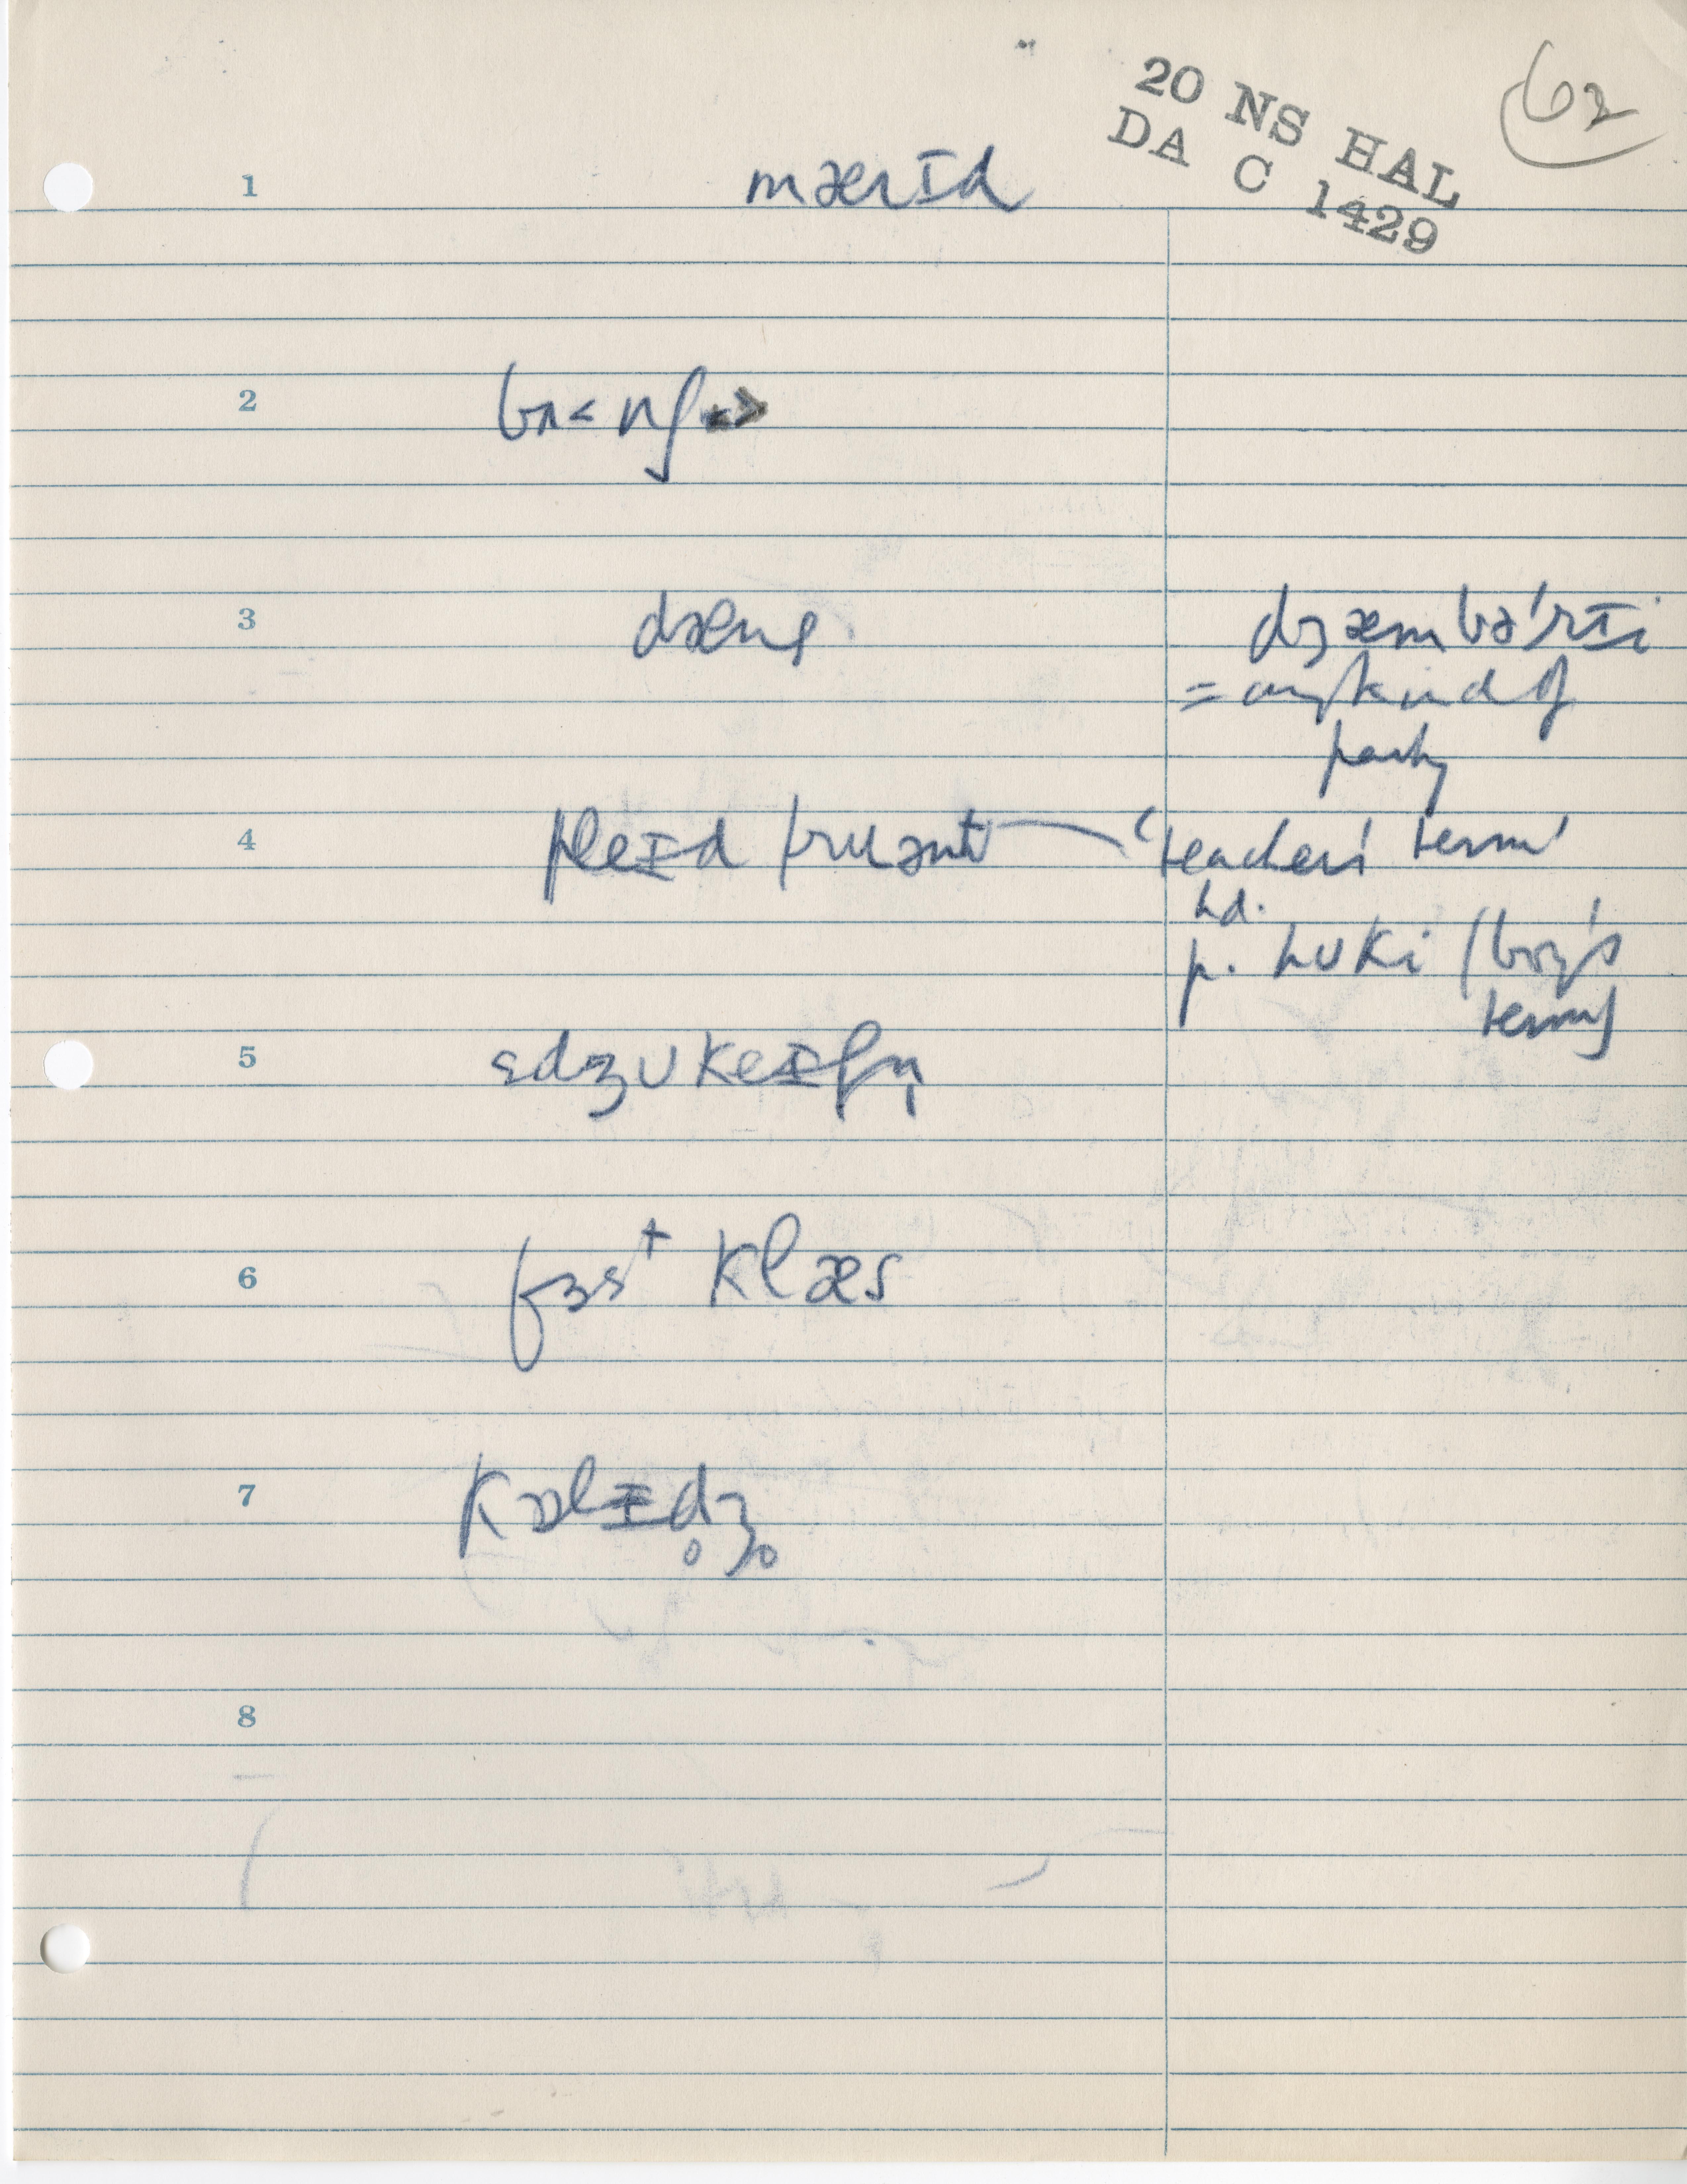 20 NS HAL
DA C 1429
62
1 mærɪd
2
3 dæns dʒæmbərɪi
= any kind of
party
4 pleɪd truənt 'teachers' term'
hd.
p. hʊki (boy's
term)
5 ɛdʒʊkeɪʃn̩
6 fɜst klæs
7 kɒlɪd̥ʒ̥
8